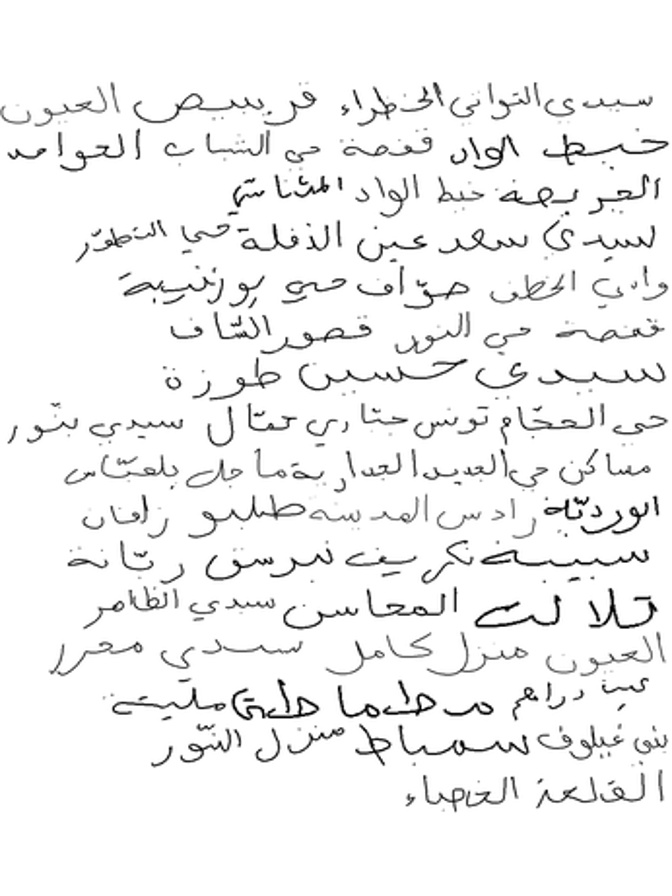 سيدي التواتي الخظراء قربيص العيون
خبط الواد قفصة حي الشباب العوامد
العريصة خبط الواد المشتاتي
سيدي سعد عين الدفلة حي التطوّر
وادي الخطف صوّاف حي بورنيبة
قفصة حي النور قصور السّاف
سيدي حسين طوزة
حي الحجّام تونس جبّاري عمّال سيدي بنّور
مساكن حي العديد الجدارية ماجل بلعبّاس
الوردنّة رادس المدينة طلبو زافان
سبيبة تكريف نبرسق ربّانة
تلالت المحاسن سيدي الظاهر
العيون منزل كامل سيدي محرز
عين دراهم مطماطة مليتة
بني غيلوف سمباط منزل النّور
القلعة الخصباء